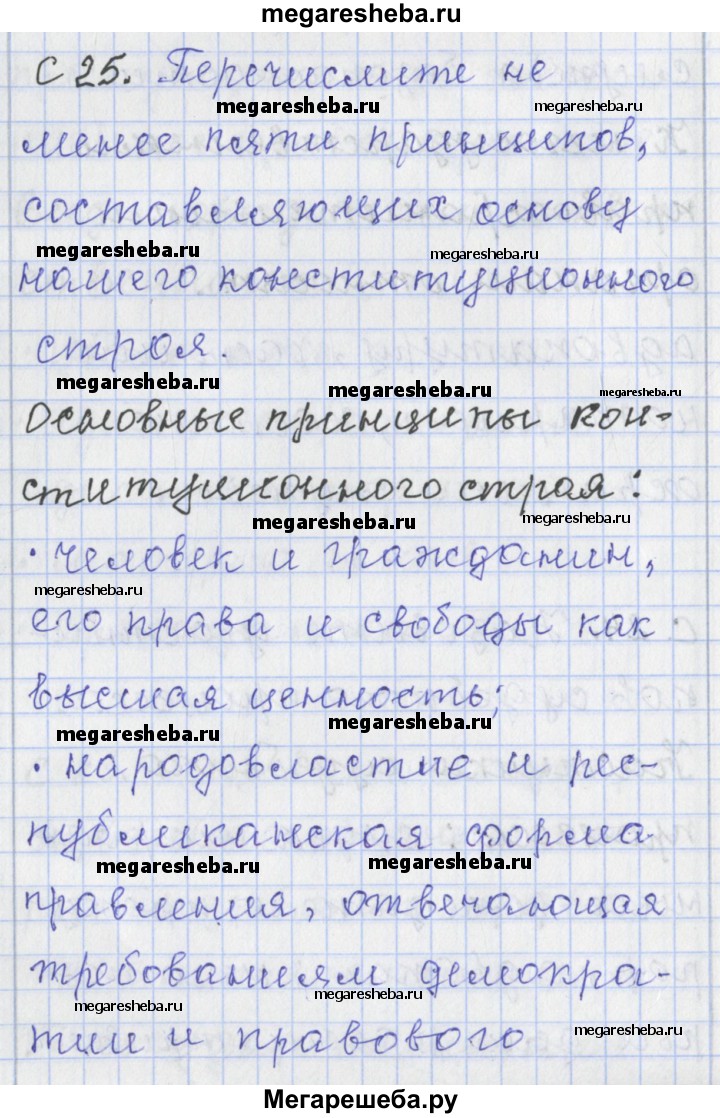 megaresheba.ru
С 25. Перечислите не
megaresheba.ru megaresheba.ru
менее пяти принципов,
составляющих основу
megaresheba.ru megaresheba.ru
нашего конституционного
строя.
megaresheba.ru megaresheba.ru megaresheba.ru
Основные принципы кон-
ституционного строя:
megaresheba.ru megaresheba.ru
• человек и гражданин,
megaresheba.ru
его права и свободы как
высшая ценность;
megaresheba.ru megaresheba.ru
• народовластие и рес-
публиканская форма
megaresheba.ru megaresheba.ru
правления, отвечающая
требованиям демокра-
megaresheba.ru megaresheba.ru
тии и правового
megaresheba.ru
Мегарешеба.ру